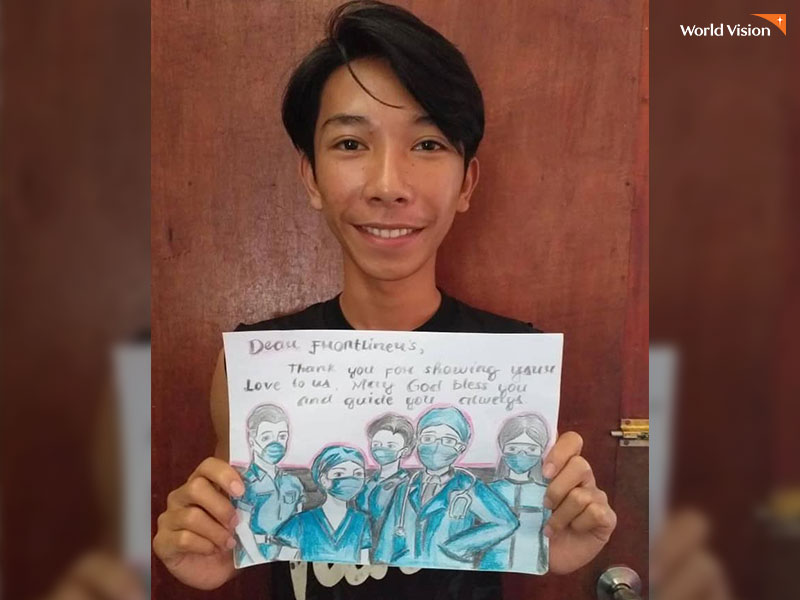 World Vision
Dear Frontliners,
Thank you for showing your
Love to us. May God bless you
and guide you always